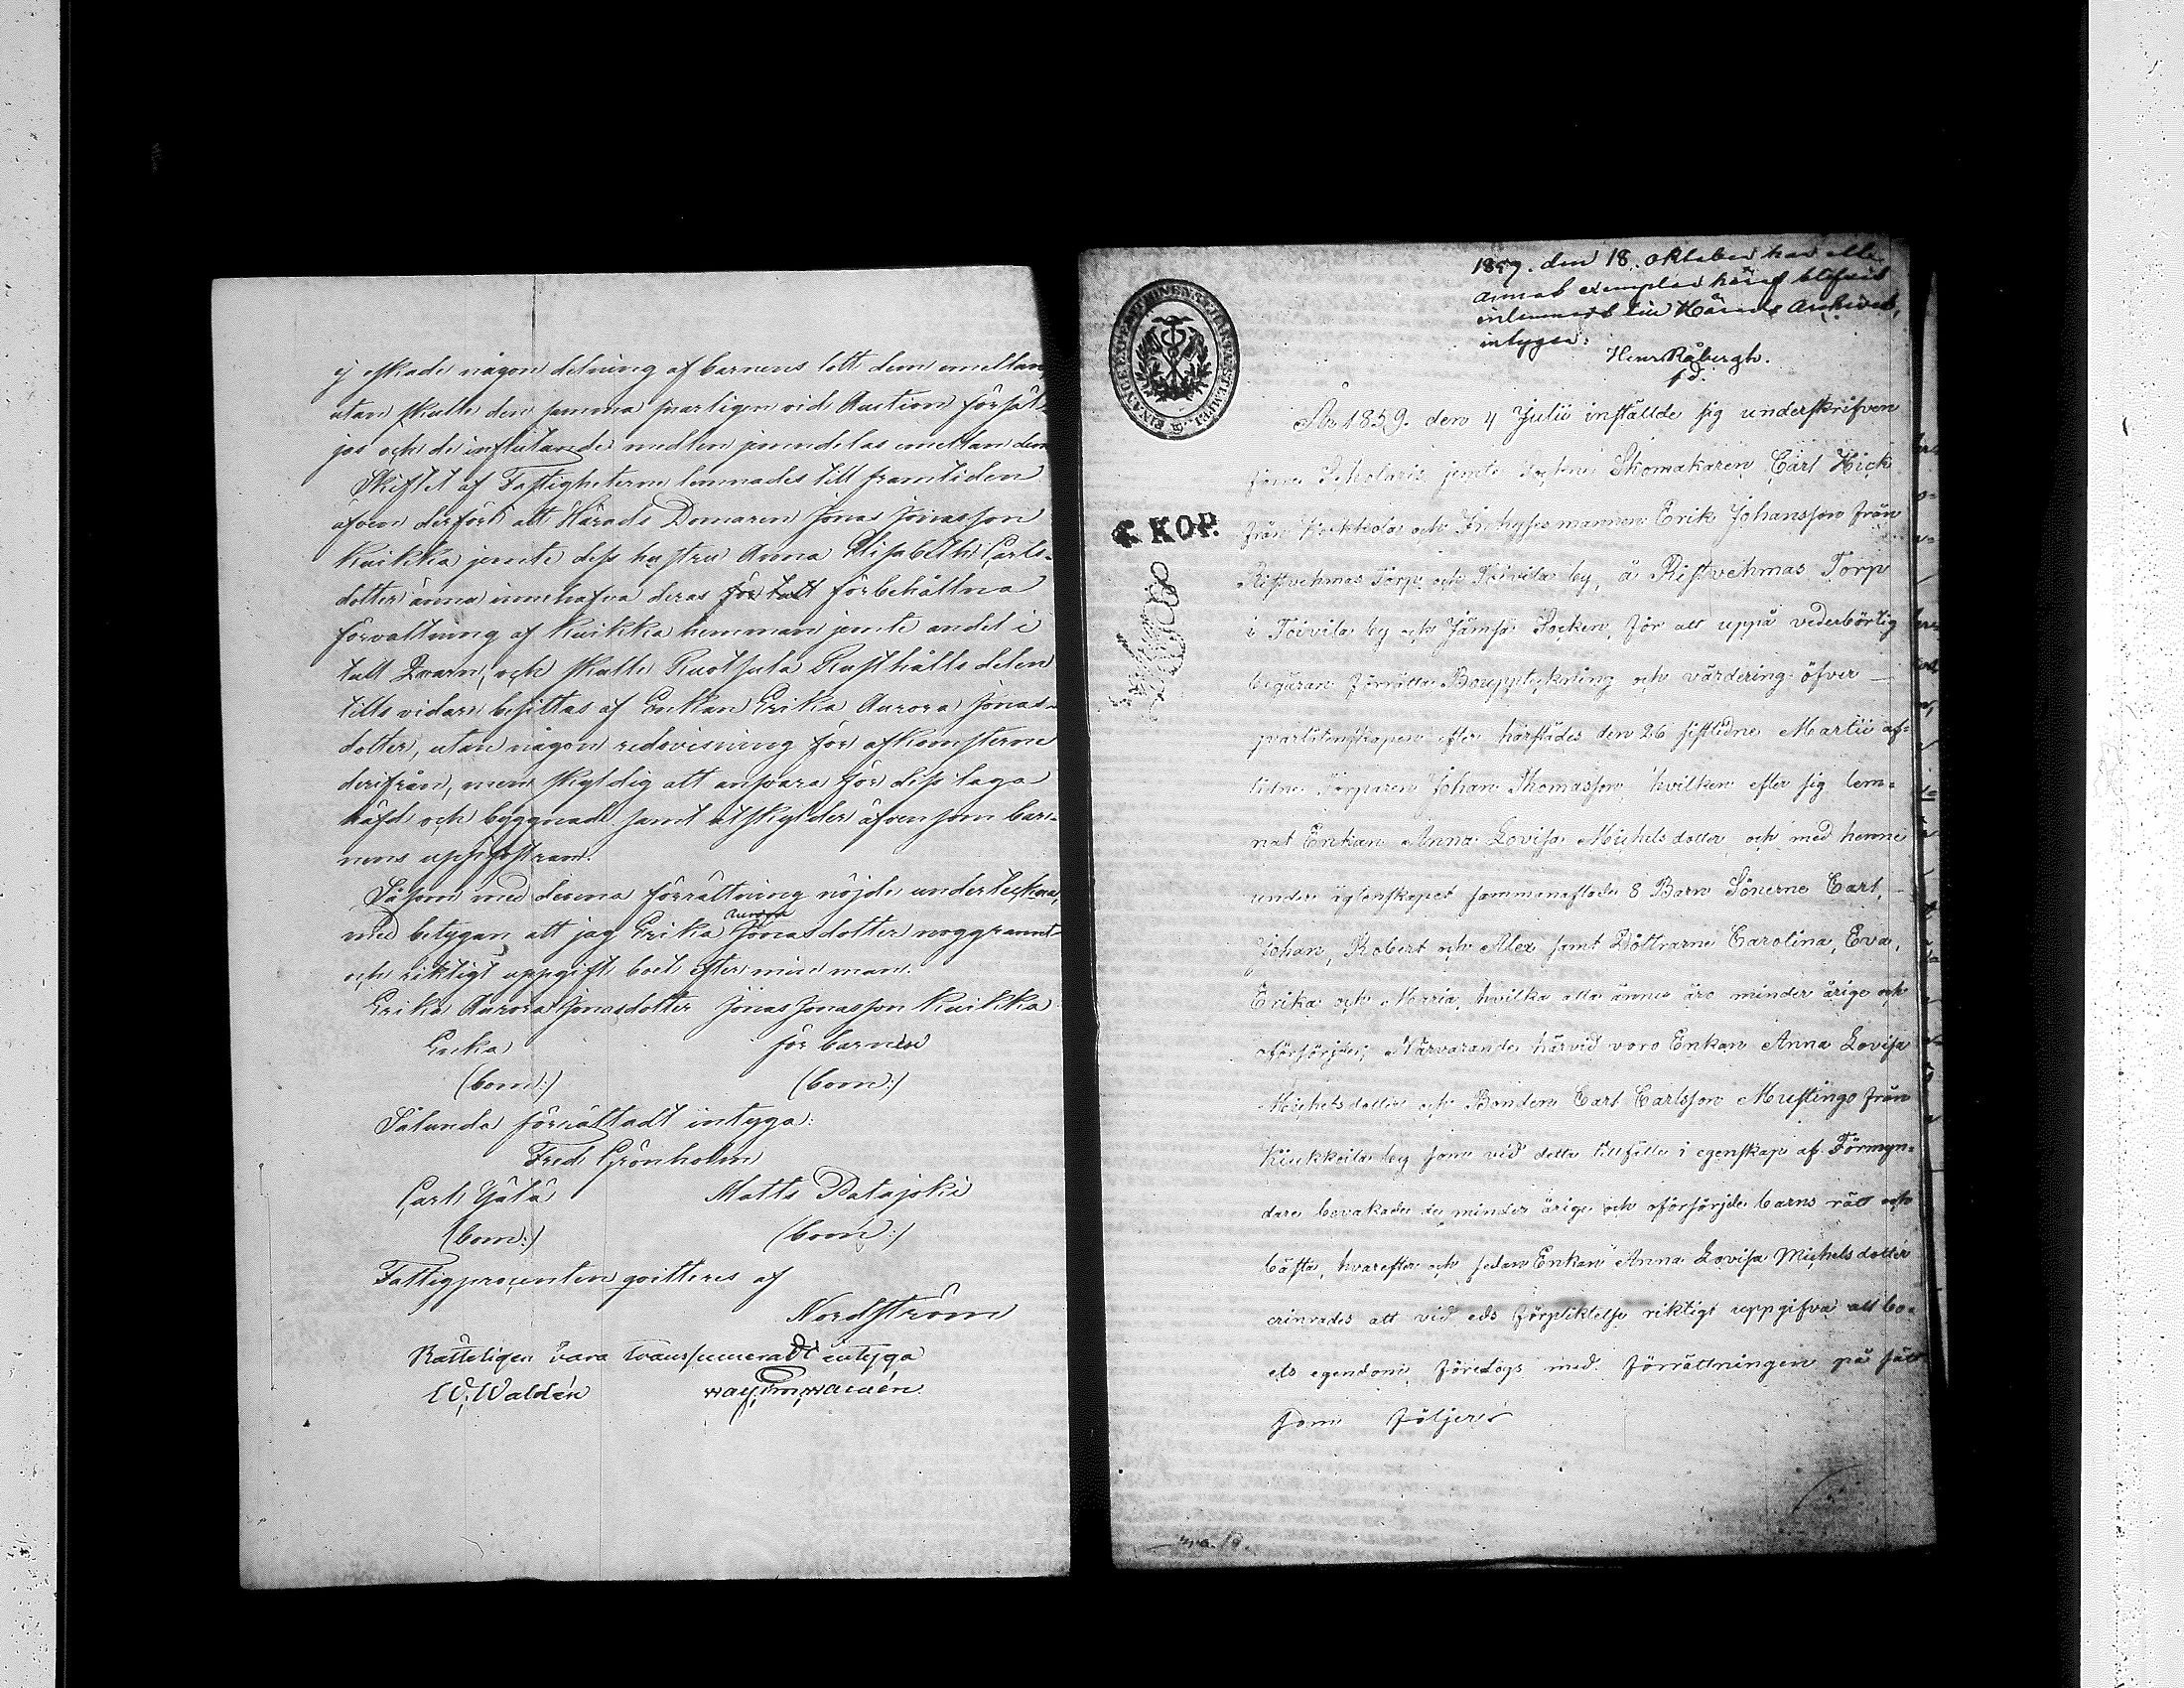 ej åskade någon delning af barnens lott dem emellan,
utan skulle den samma snarligen vid Auction försäl-
jas och de influtande medlen jemndelas emellan dem
Skiftet af Fastigheterne lemnades till framtiden
äfven derföre att Härads Domaren Jonas Jonasson
Kuikka jemte dess hustru Anna Elisabeth Carls-
dotter ännu innehafva deras för talt förbehållna
förvaltning af Kuikka hemman jemte andel i
tull Qvarn, och skulle Ruotsula Rusthålls delen
tills vidare besittas af Enkan Erika Aurora Jonas-
dotter, utan någon redovisning för afkomsterne
derifrån, men skyldig att ansvara för dess laga
häfd och byggnad samt utskylder äfvensom bar-
nens uppfostran.
Såsom med denna förrättning nöjde underteckna,
med betygan att jag Erika Aurora Jonasdotter noggrannt
och riktigt uppgift boet efter min man.
Erika Aurora Jonasdotter Jonas Jonasson Kuikka
Enka för barnen
(bom:) (bom:)
Sålunda förrättadt intyga:
Fred. Grönholm
Carl Ylä Matts Patajoki
(bom:) (bom:)
Fattigprocenten qvitteras af
Nordström
Rätteligen vara transsumeradt intyga
W. Waldén Waldén
1859. den 18. oktober har ett
annat exemplar häraf blifvit
inlemnadt till Härads Archivet,
intygar:
Henr. Råbergh.
fd.
FINANCE EXPEDITIONENS CHARTÆ STEMPEL
4. KOP.
År 1859. den 4 Julii inställde sig underskrifven
jemte Skomakaren Carl Hick
från Kockkola och Inhysesmannen Erik Johansson från
Ristvehmas Torp och Toivila by, å Ristvehmas Torp
i Toivila by och Jämsä Socken, för att uppå vederbörlig
begäran förrätta Bouppteckning och värdering öfver
qvarlåtenskapen efter härstädes den 26 sistledne Martii af-
lidne Torparen Johan Thomasson, hvilken efter sig lem-
nat Enkan Anna Lovisa Michelsdotter och med henne
under ägtenskapet sammanaflade 8 Barn Sönerne Carl,
Johan, Robert och Alex samt Döttrarne Carolina, Eva,
Erika och Maria, hvilka alla ännu äro minder årige och
oförsörjde; Närvarande härvid voro Enkan Anna Lovisa
Michelsdotter och Bonden Carl Carlsson Mustingo från
Kiukkoila by som vid detta tillfälle i egenskap af Förmyn-
dare bevakade de minder årige och oförsörjde barns rätt och
bästa, hvarefter och sedan Enkan Anna Lovisa Michelsdotter
erinrades att vid eds förpliktelse riktigt uppgifva all bo-
ets egendom, företogs med förrättningen på sätt
som följer: